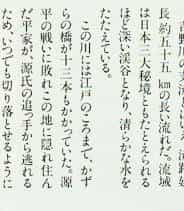 長約五十五㎞の長い流れだ。流域
は日本三大秘境ともたとえられる
ほど深い渓谷となり、清らかな水を
たたえている。
この川には江戸のころまで、かず
らの橋が十三本もかかっていた。源
平の戦いに敗れこの地に隠れ住ん
だ平家が、源氏の追っ手から逃れる
ため、いつでも切り落とせるように